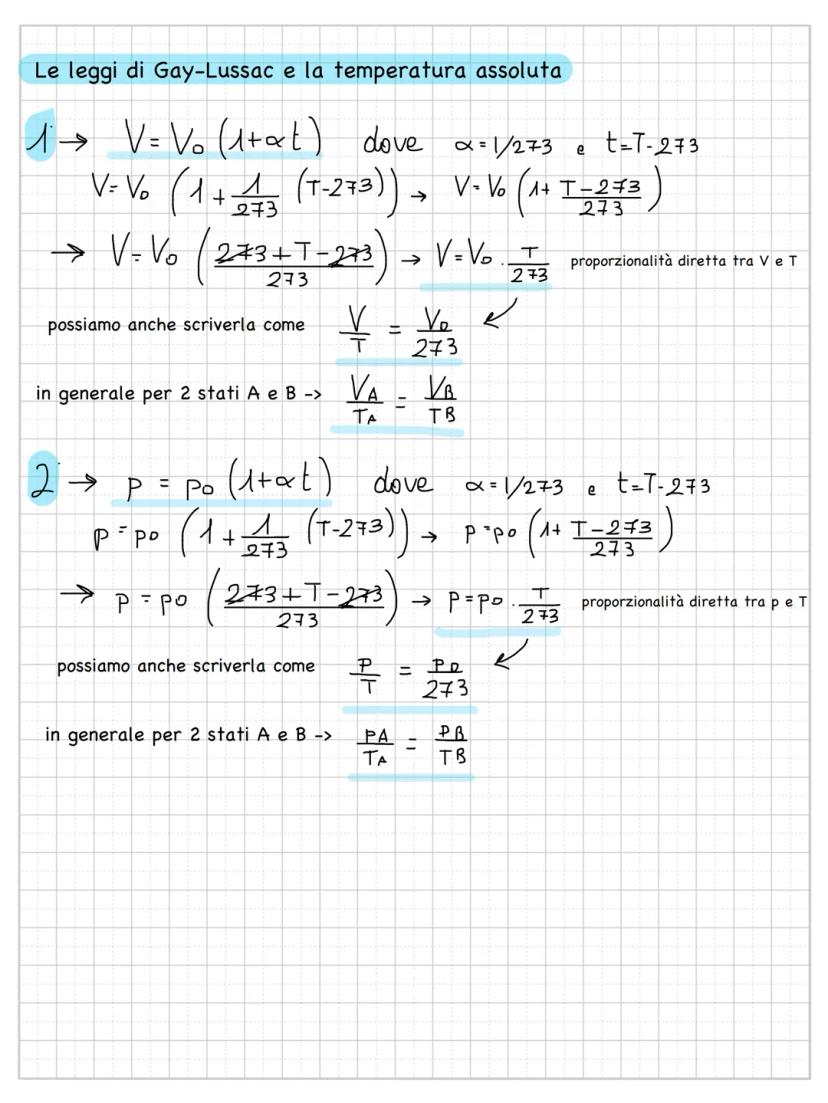 Le leggi di Gay-Lussac e la temperatura assoluta
1 → V = V₀ (1+αt) dove α = 1/273 e t=T-273
V = V₀ (1 + 1/273 (T-273)) → V = V₀ (1+ T-273/273)
→ V = V₀ (273+T-273/273) → V = V₀ · T/273 proporzionalità diretta tra V e T
possiamo anche scriverla come V/T = V₀/273
in generale per 2 stati A e B -> VA/TA = VB/TB
2 → p = p₀ (1+αt) dove α = 1/273 e t=T-273
p = p₀ (1 + 1/273 (T-273)) → p = p₀ (1+ T-273/273)
→ p = p₀ (273+T-273/273) → p = p₀ · T/273 proporzionalità diretta tra p e T
possiamo anche scriverla come P/T = P₀/273
in generale per 2 stati A e B -> PA/TA = PB/TB